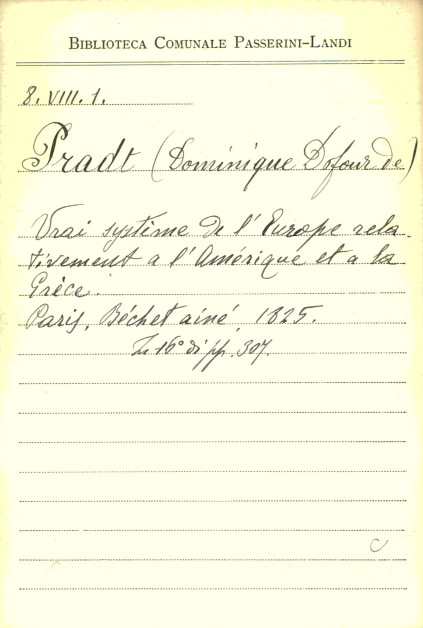 BIBLIOTECA COMUNALE PASSERINI-LANDI
8. VIII. 1.
Pradt (Dominique Dofour de)
Vrai système de l' Europe rela-
tivement a l' Amérique et a la
Grèce.
Paris, Béchet ainé, 1825.
16° di pp. 307.
C